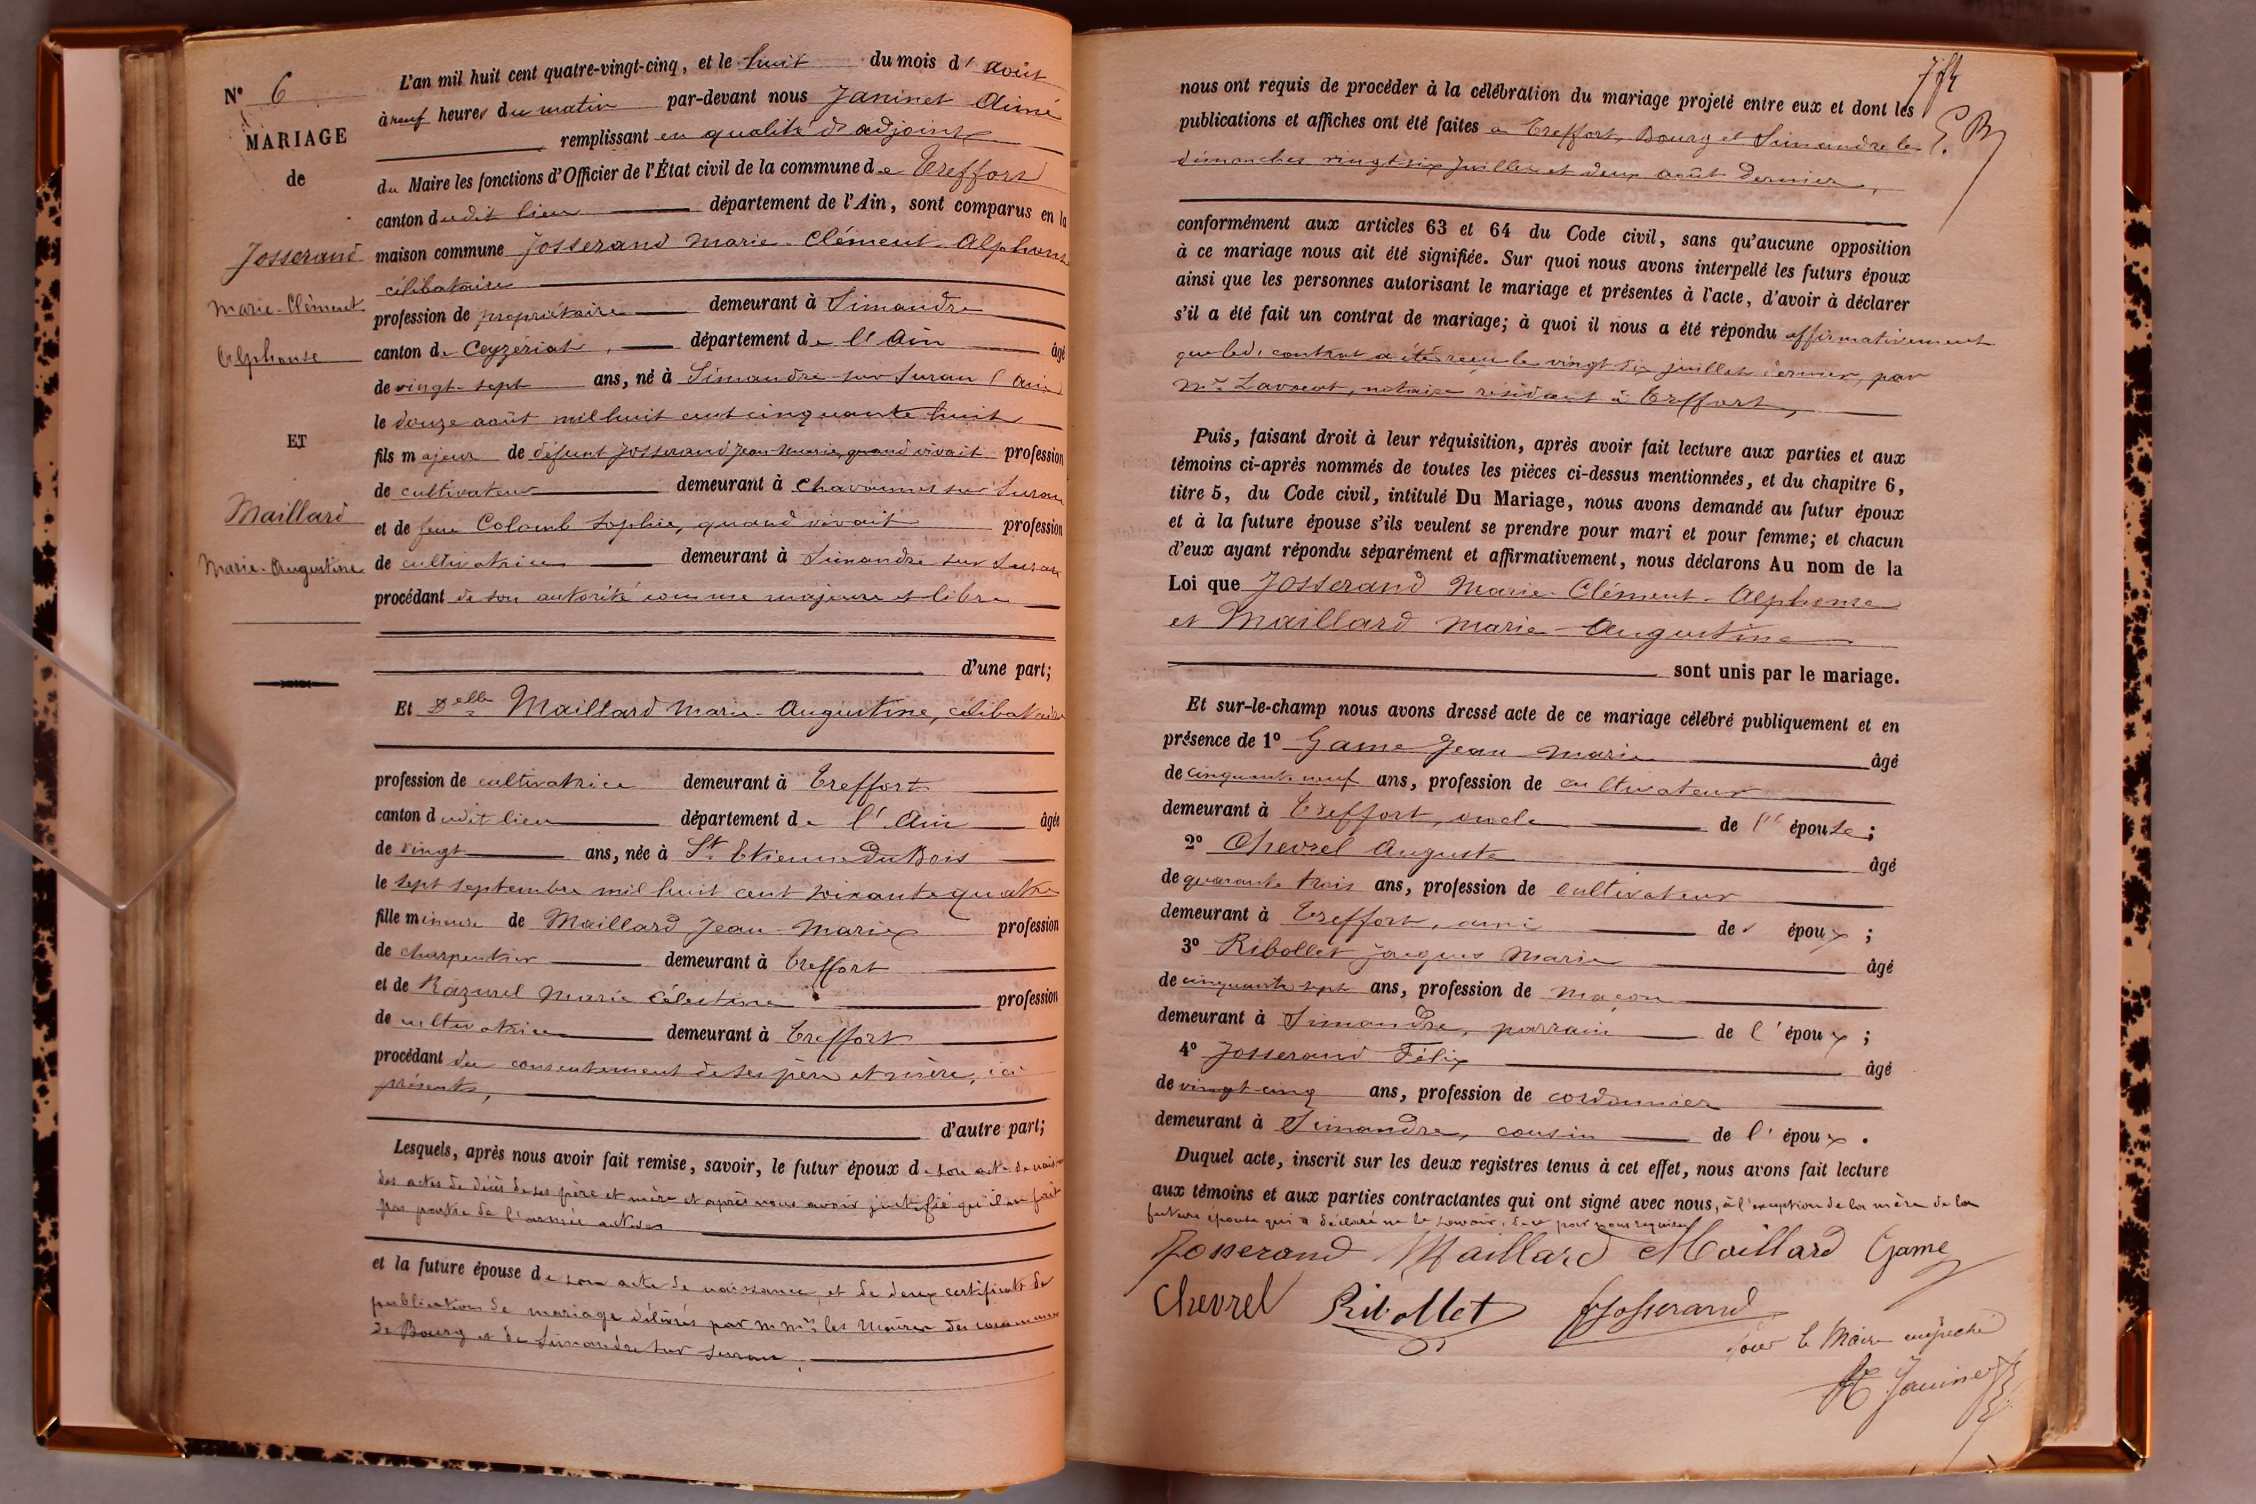 N° 6
MARIAGE
de
Josserand
Marie-Clément
Alphonse
ET
Maillard
Marie-Augustine
L'an mil huit cent quatre-vingt-cinq, et le huit du mois d' août
à neuf heures du matin par-devant nous Janinet Aimé
remplissant en qualité d'adjoint
du Maire les fonctions d'Officier de l'État civil de la commune de Treffort
canton dudit lieu département de l'Ain, sont comparus en la
maison commune Josserand Marie-Clément-Alphonse
célibataire
profession de propriétaire demeurant à Simandre
canton de Ceyzériat, département de l'Ain âgé
de vingt-sept ans, né à Simandre-sur-Suran (Ain)
le douze août mil huit cent cinquante huit
fils majeur de défunt Josserand Jean-Marie, quand vivait profession
de cultivateur demeurant à Chavannes sur Suran
et de feue Colomb Sophie, quand vivait profession
de cultivatrice demeurant à Simandre sur Suran
procédant de son autorité comme majeure et libre
d'une part;
Et Delle Maillard Marie-Augustine, célibataire
profession de cultivatrice demeurant à Treffort
canton dudit lieu département de l'Ain âgée
de vingt ans, née à St Etienne du Bois
le sept septembre mil huit cent soixante quatre
fille mineure de Maillard Jean-Marie profession
de charpentier demeurant à Treffort
et de Razurel Marie Célestine profession
de cultivatrice demeurant à Treffort
procédant du consentement de ses père et mère, ici
présents,
d'autre part;
Lesquels, après nous avoir fait remise, savoir, le futur époux de son acte de
des actes de décès de ses père et mère et après nous avoir justifié qu'il ne fait
pas partie de l'armée active
et la future épouse de son acte de naissance, et de deux certificats de
publication de mariage délivrés par MMrs les Maires des communes
de Bourg et de Simandre sur Suran.
nous ont requis de procéder à la célébration du mariage projeté entre eux et dont les
publications et affiches ont été faites à Treffort, Bourg et Simandre les
dimanches vingt-six juillet et deux août dernier,
conformément aux articles 63 et 64 du Code civil, sans qu'aucune opposition
à ce mariage nous ait été signifiée. Sur quoi nous avons interpellé les futurs époux
ainsi que les personnes autorisant le mariage et présentes à l'acte, d'avoir à déclarer
s'il a été fait un contrat de mariage; à quoi il nous a été répondu affirmativement
que led. contrat a été reçu le vingt six juillet dernier, par
Me notaire résidant à Treffort,
Puis, faisant droit à leur réquisition, après avoir fait lecture aux parties et aux
témoins ci-après nommés de toutes les pièces ci-dessus mentionnées, et du chapitre 6,
titre 5, du Code civil, intitulé Du Mariage, nous avons demandé au futur époux
et à la future épouse s'ils veulent se prendre pour mari et pour femme; et chacun
d'eux ayant répondu séparément et affirmativement, nous déclarons Au nom de la
Loi que Josserand Marie-Clément-Alphonse
et Maillard Marie-Augustine
sont unis par le mariage.
Et sur-le-champ nous avons dressé acte de ce mariage célébré publiquement et en
présence de 1° Game Jean Marie âgé
de cinquante neuf ans, profession de cultivateur
demeurant à Treffort, oncle de l' épouse;
2° Chevrel Auguste âgé
de quarante trois ans, profession de cultivateur
demeurant à Treffort, ami de l' époux;
3° Ribollet Jacques Marie âgé
de cinquante sept ans, profession de maçon
demeurant à Simandre, parrain de l' époux;
4° Josserand Félix âgé
de vingt-cinq ans, profession de cordonnier
demeurant à Simandre, cousin de l' époux.
Duquel acte, inscrit sur les deux registres tenus à cet effet, nous avons fait lecture
aux témoins et aux parties contractantes qui ont signé avec nous, à l'exception de la mère de la
future épouse qui a déclaré ne le savoir, de ce par nous requise
Josserand Maillard Maillard Game
Chevrel Ribollet Josserand
Pour le Maire empêché
Janinet